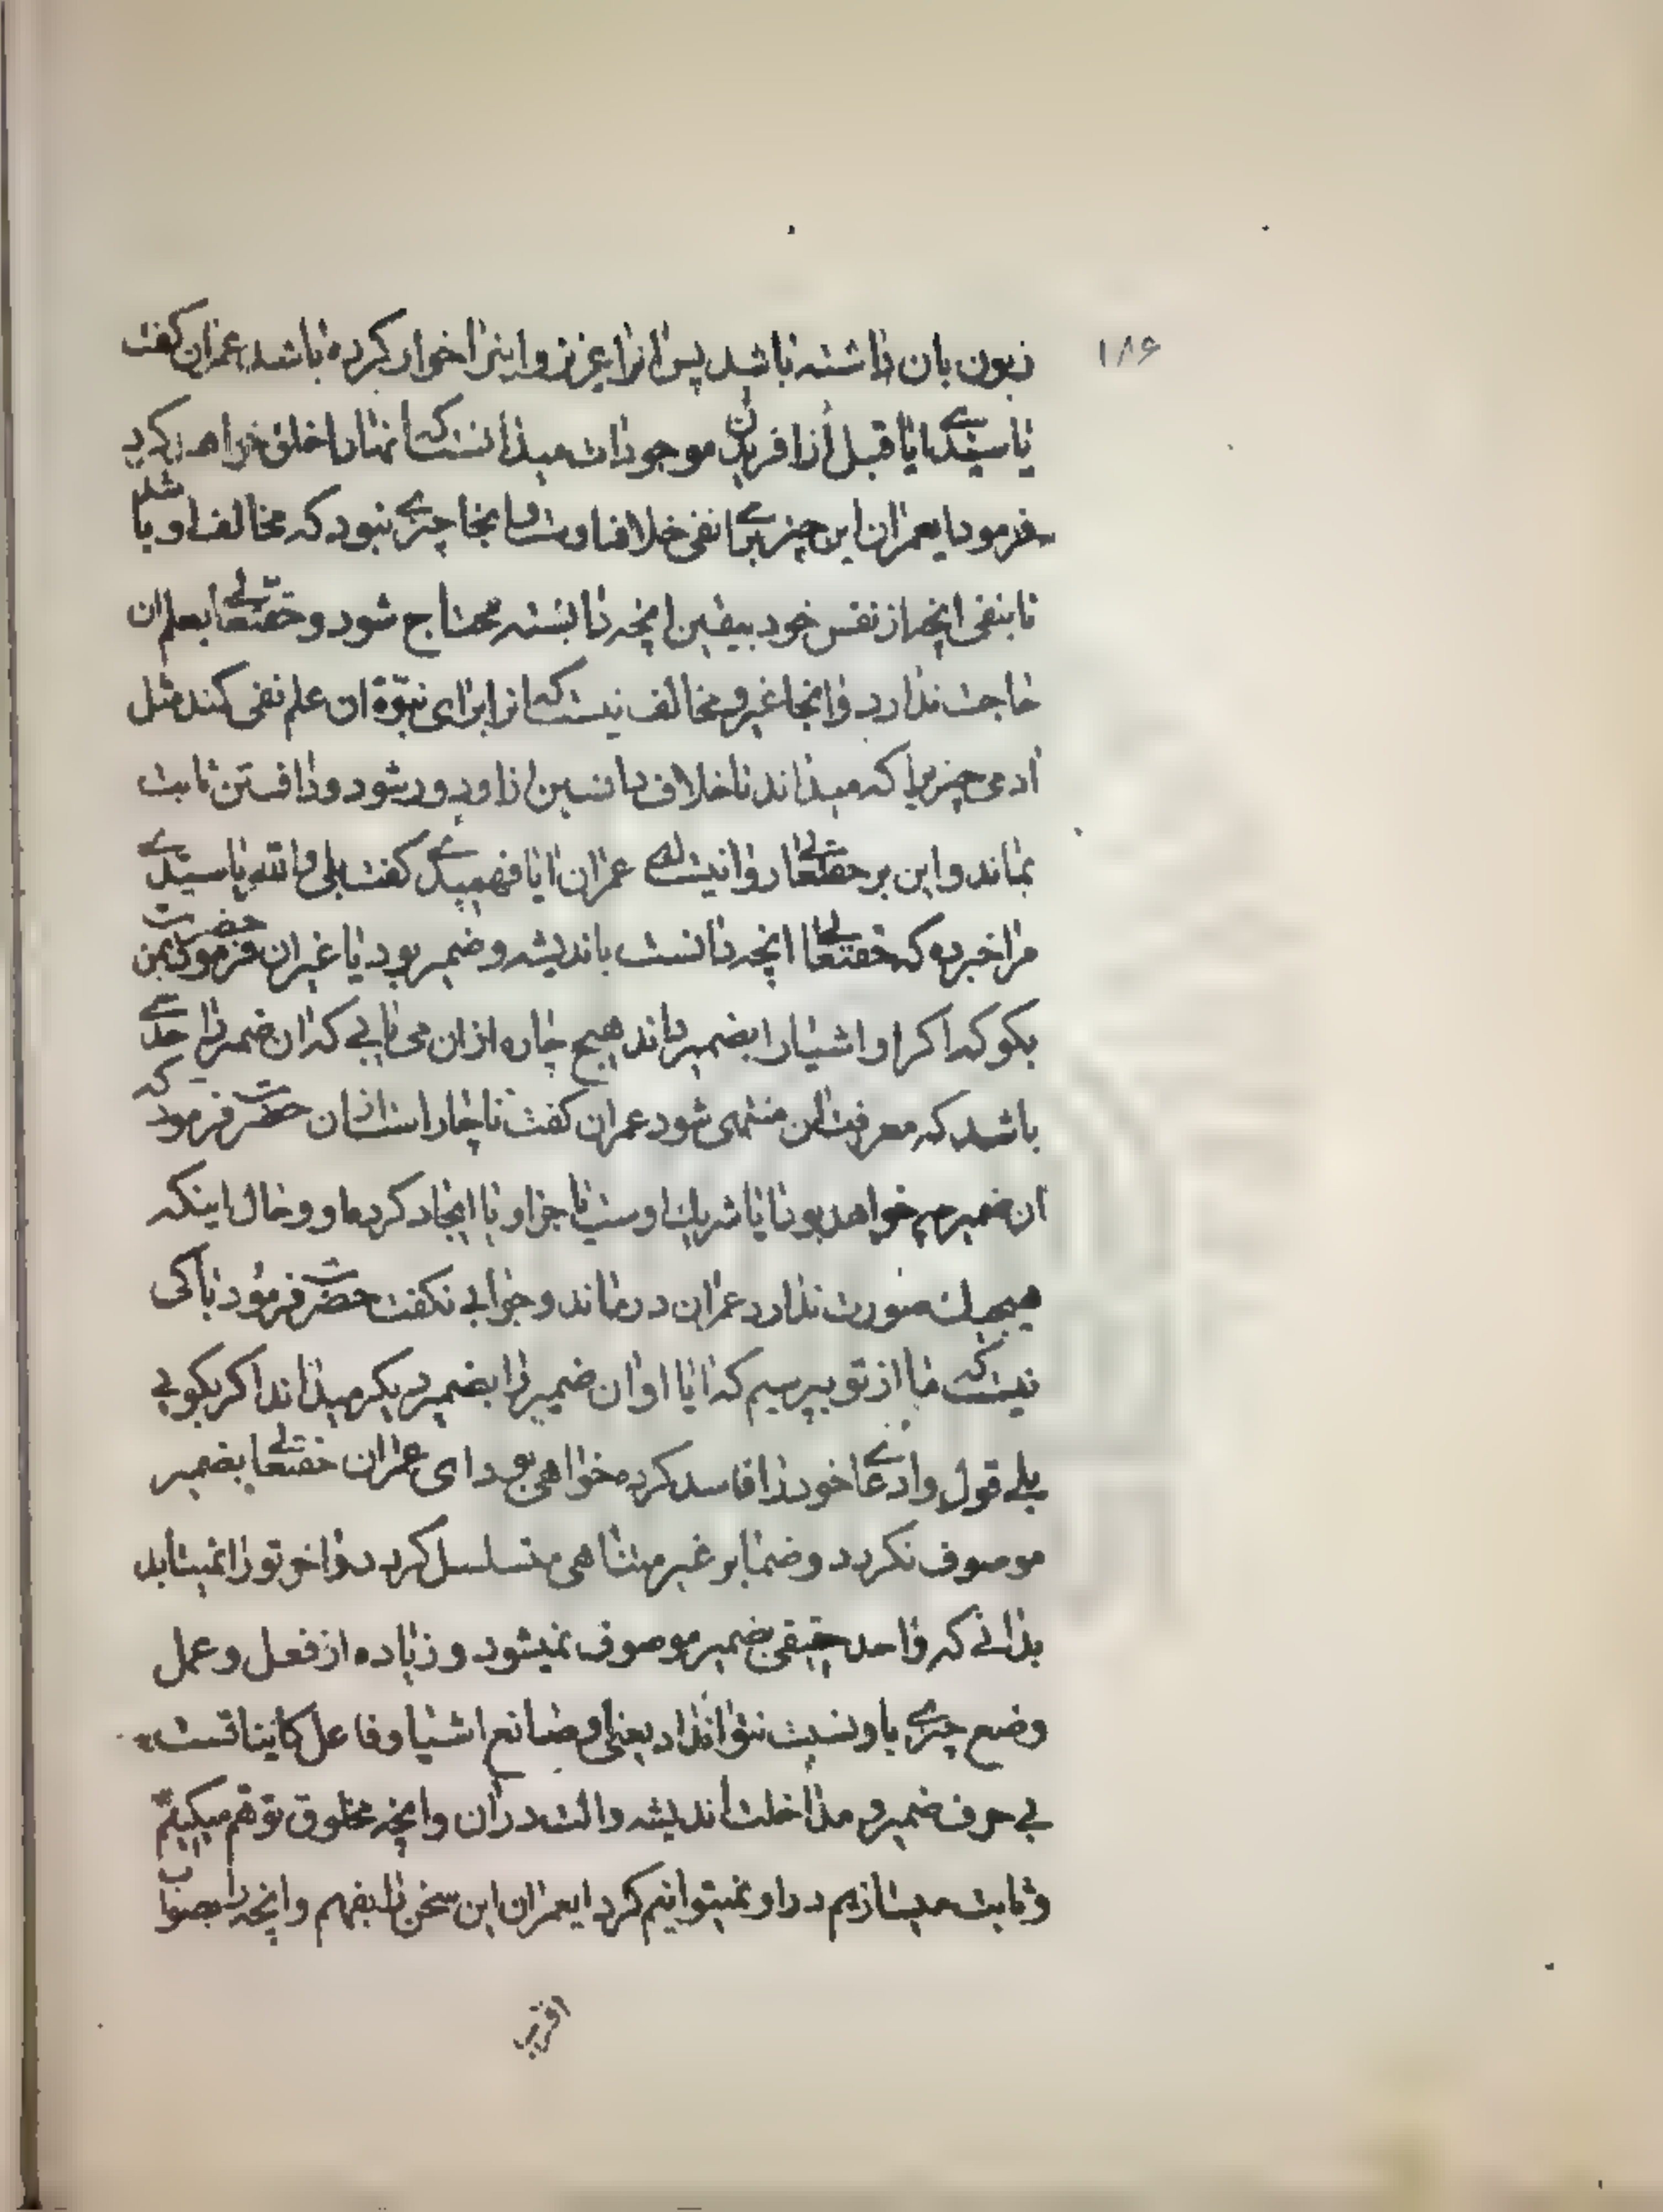 ۱۸۶
زبون بان داشته باشد پس انرا عزیز و اینرا خوار کرده باشد عمران کفت
یا سیدی ایا قبل از افریدن موجودات میدانست که انها را خلق خواهد کرد
فرمود ایعمران این چیز برای نفی خلاف اوست و انجا چیزی نبود که مخالف او باشد
تا بنفی انچه از نفس خود بیقین انچه دانسته محتاج شود و حقتعالی بعلم ان
حاجت ندارد و انجا غیر و مخالف نیست که انرا برای ان علم نفی کند مثل
ادمی چیزیرا که میداند تا خلاف دانستن از او دور شود و دانستن ثابت
بماند و این بر حقتعالی روا نیست ای عمران ایا فهمیدی کفت بلی والله یا سیدی
مرا خبر ده که حقتعالی انچه دانست باندیشه و ضمیر بود یا غیر ان حضرت فرمود بمن
بکو که اکر او اشیا را بضمیر داند هیچ چاره از ان می یابی که ان ضمیر را حدی
باشد که معرفت ان منتهی شود عمران کفت ناچار است از ان حضرت فرمود که
ان ضمیر چه خواهد بود ایا شریک اوست یا جزاو یا ایجاد کرده او و حال اینکه
هیچیک صورت ندارد عمران درماند و جوابی نکفت حضرت فرمود باکی
نیست که ما از تو بپرسیم که ایا او ان ضمیر را بضمیر دیکر میداند اکر بکویی
بلی قول و ادعای خود را فاسد کرده خواهی بود ای عمران حقتعالی بضمیر
موصوف نکردد و ضمایر غیر متناهی متسلسل کردد و اخر تو را نمیباید
بدانی که واحد حقیقی بضمیر موصوف نمیشود و زیاده از فعل و عمل
وضع چیزی باو نسبت نتوان داد یعنی او صانع اشیا و فاعل کایناتست
بی حرف ضمیر و مداخلت اندیشه و الت در ان و انچه مخلوق توهم میکنیم
و ثابت میسازیم در او نمیتوانیم کرد ایعمران این سخن را بفهم و انچه را بصواب